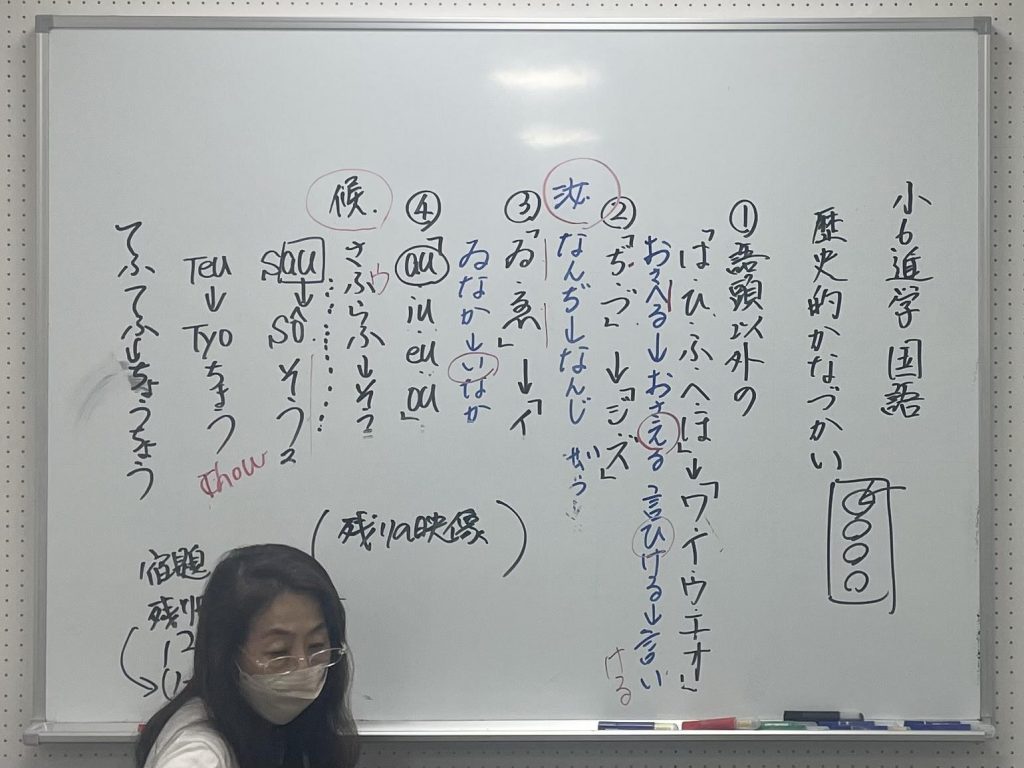 小6進学 国語
歴史的かなづかい
①語頭以外の
「は・ひ・ふ・へ・ほ」→「ワ・イ・ウ・エ・オ」
おさへる→おさえる 言ひける→言い
ける
②「ぢ・づ」→「ジ・ズ」
汝
なんぢ→なんじ
③「ゐ・ゑ」→「イ
ゐなか→いなか
④「au・iu・eu・ou」
候
さふらふ→そう
ウ
Sau→Sô そうろ
Teu→Tyo ちょう
Chou
てふてふ→ちょうちょう
(残りの映像)
宿題
残り
12